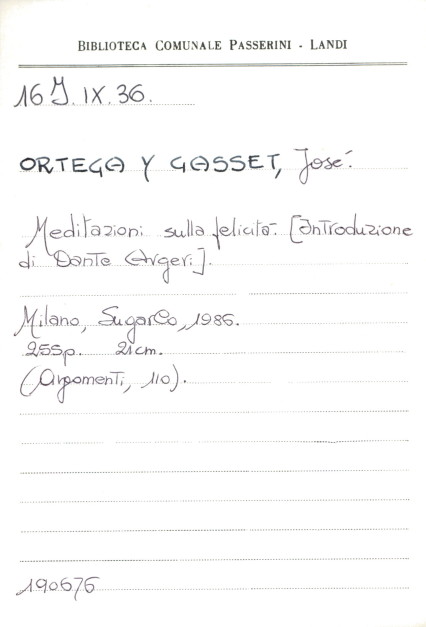 BIBLIOTECA COMUNALE PASSERINI - LANDI
16 J. IX. 36.
ORTEGA Y GASSET, José.
Meditazioni sulla felicità. [Introduzione
di Dante Argeri].
Milano, SugarCo, 1986.
255p. 21cm.
(Argomenti, 110).
190676